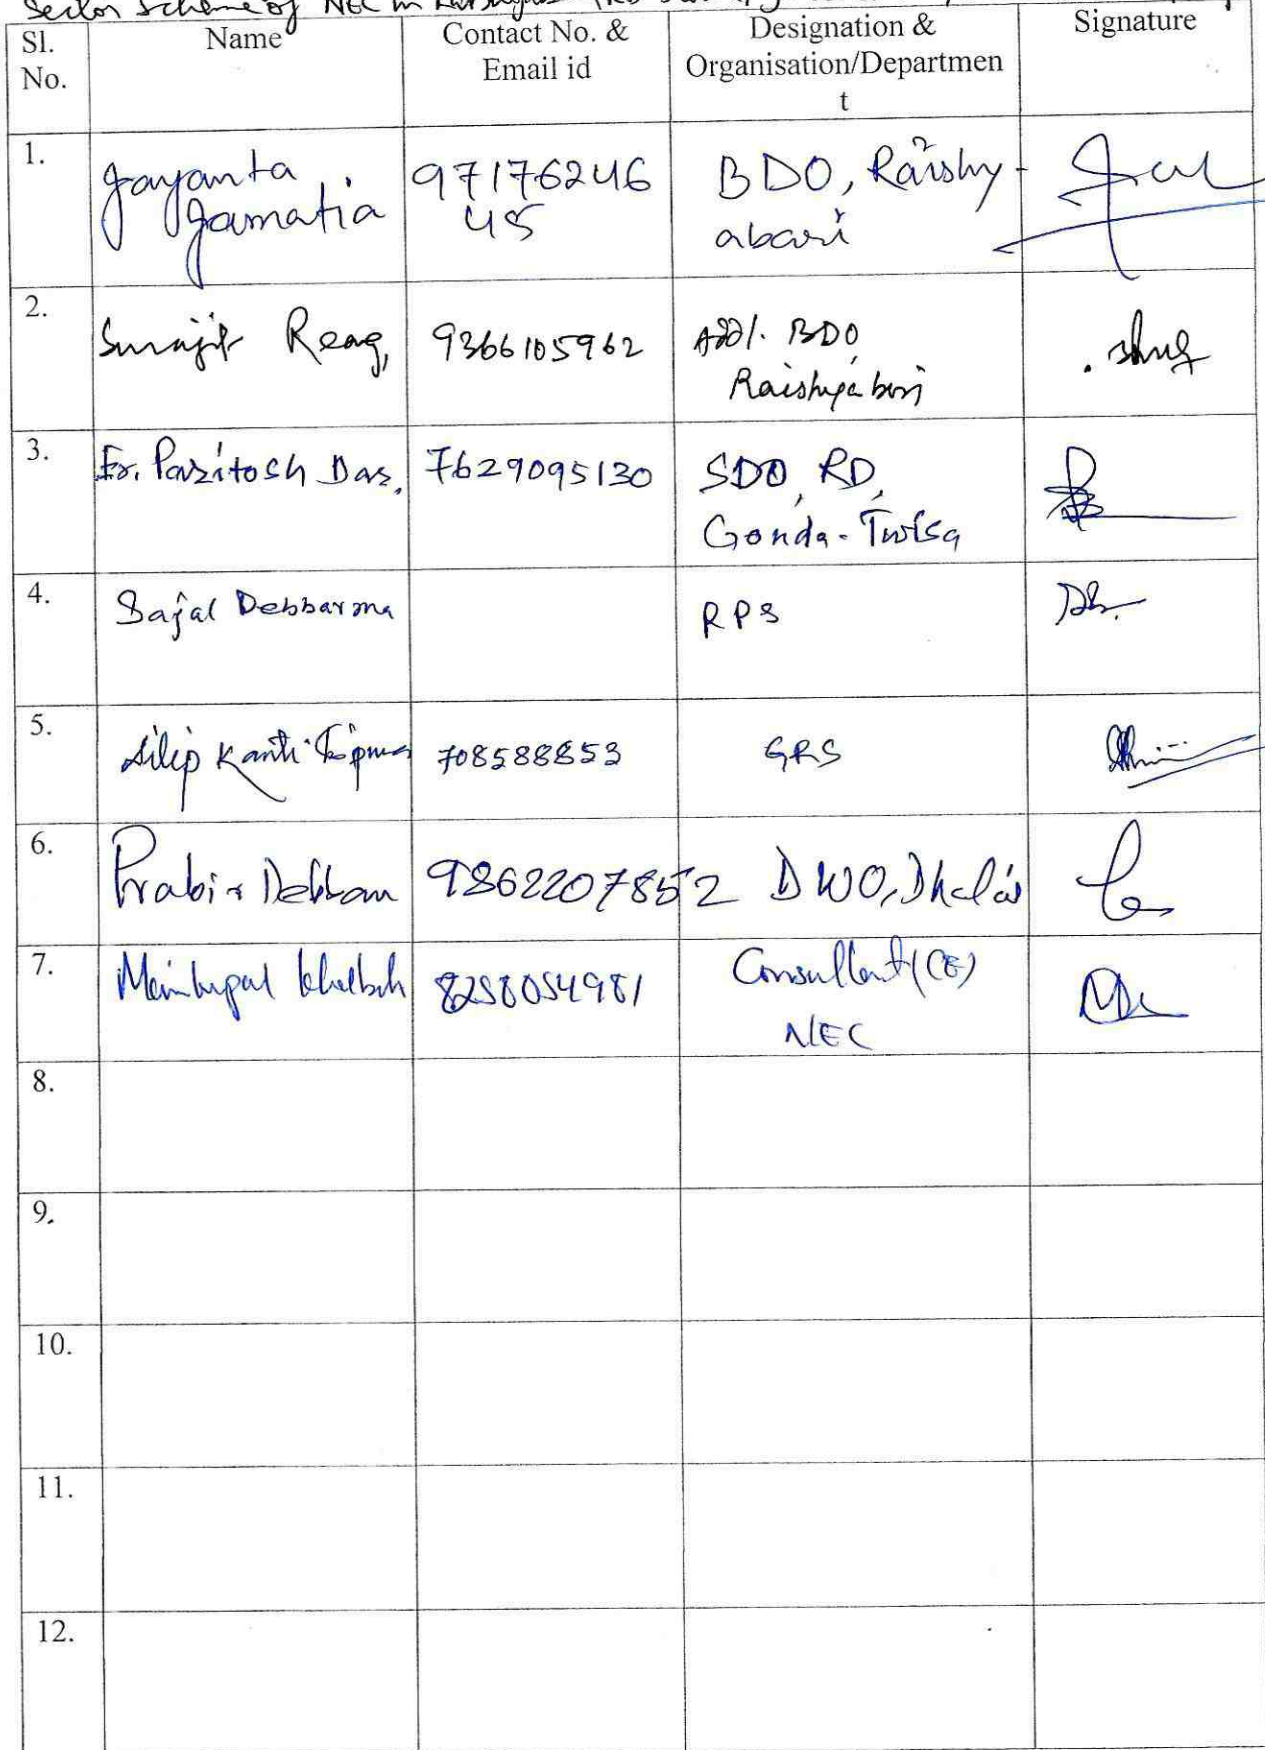 Sector Scheme of NEC in
Sl. No. Name Contact No. & Email id Designation & Organisation/Departmen t Signature
1. Jayanta Jamatia 9717624645 BDO, Raishyabari
2. Surajit Reang, 9366105962 Addl. BDO Raishyabari
3. Er. Paritosh Das, 7629095130 SDO, RD, Gonda-Twisa
4. Sajal Debbarma RPS
5. Dilip Kanti 708588853 GRS
6. Prabir Debbarma 9862207852 DWO, Dhalai
7. 8258054981 Consultant (CE) NEC
8.
9.
10.
11.
12.